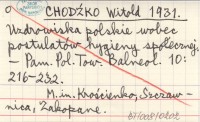 CHODŹKO Witold 1931.
Uzdrowiska polskie wobec
postulatów hygieny społecznej.
- Pam. Pol. Tow. Balneol. 10:
216-232.
M. in. Krościenko, Szczaw-
nica, Zakopane.